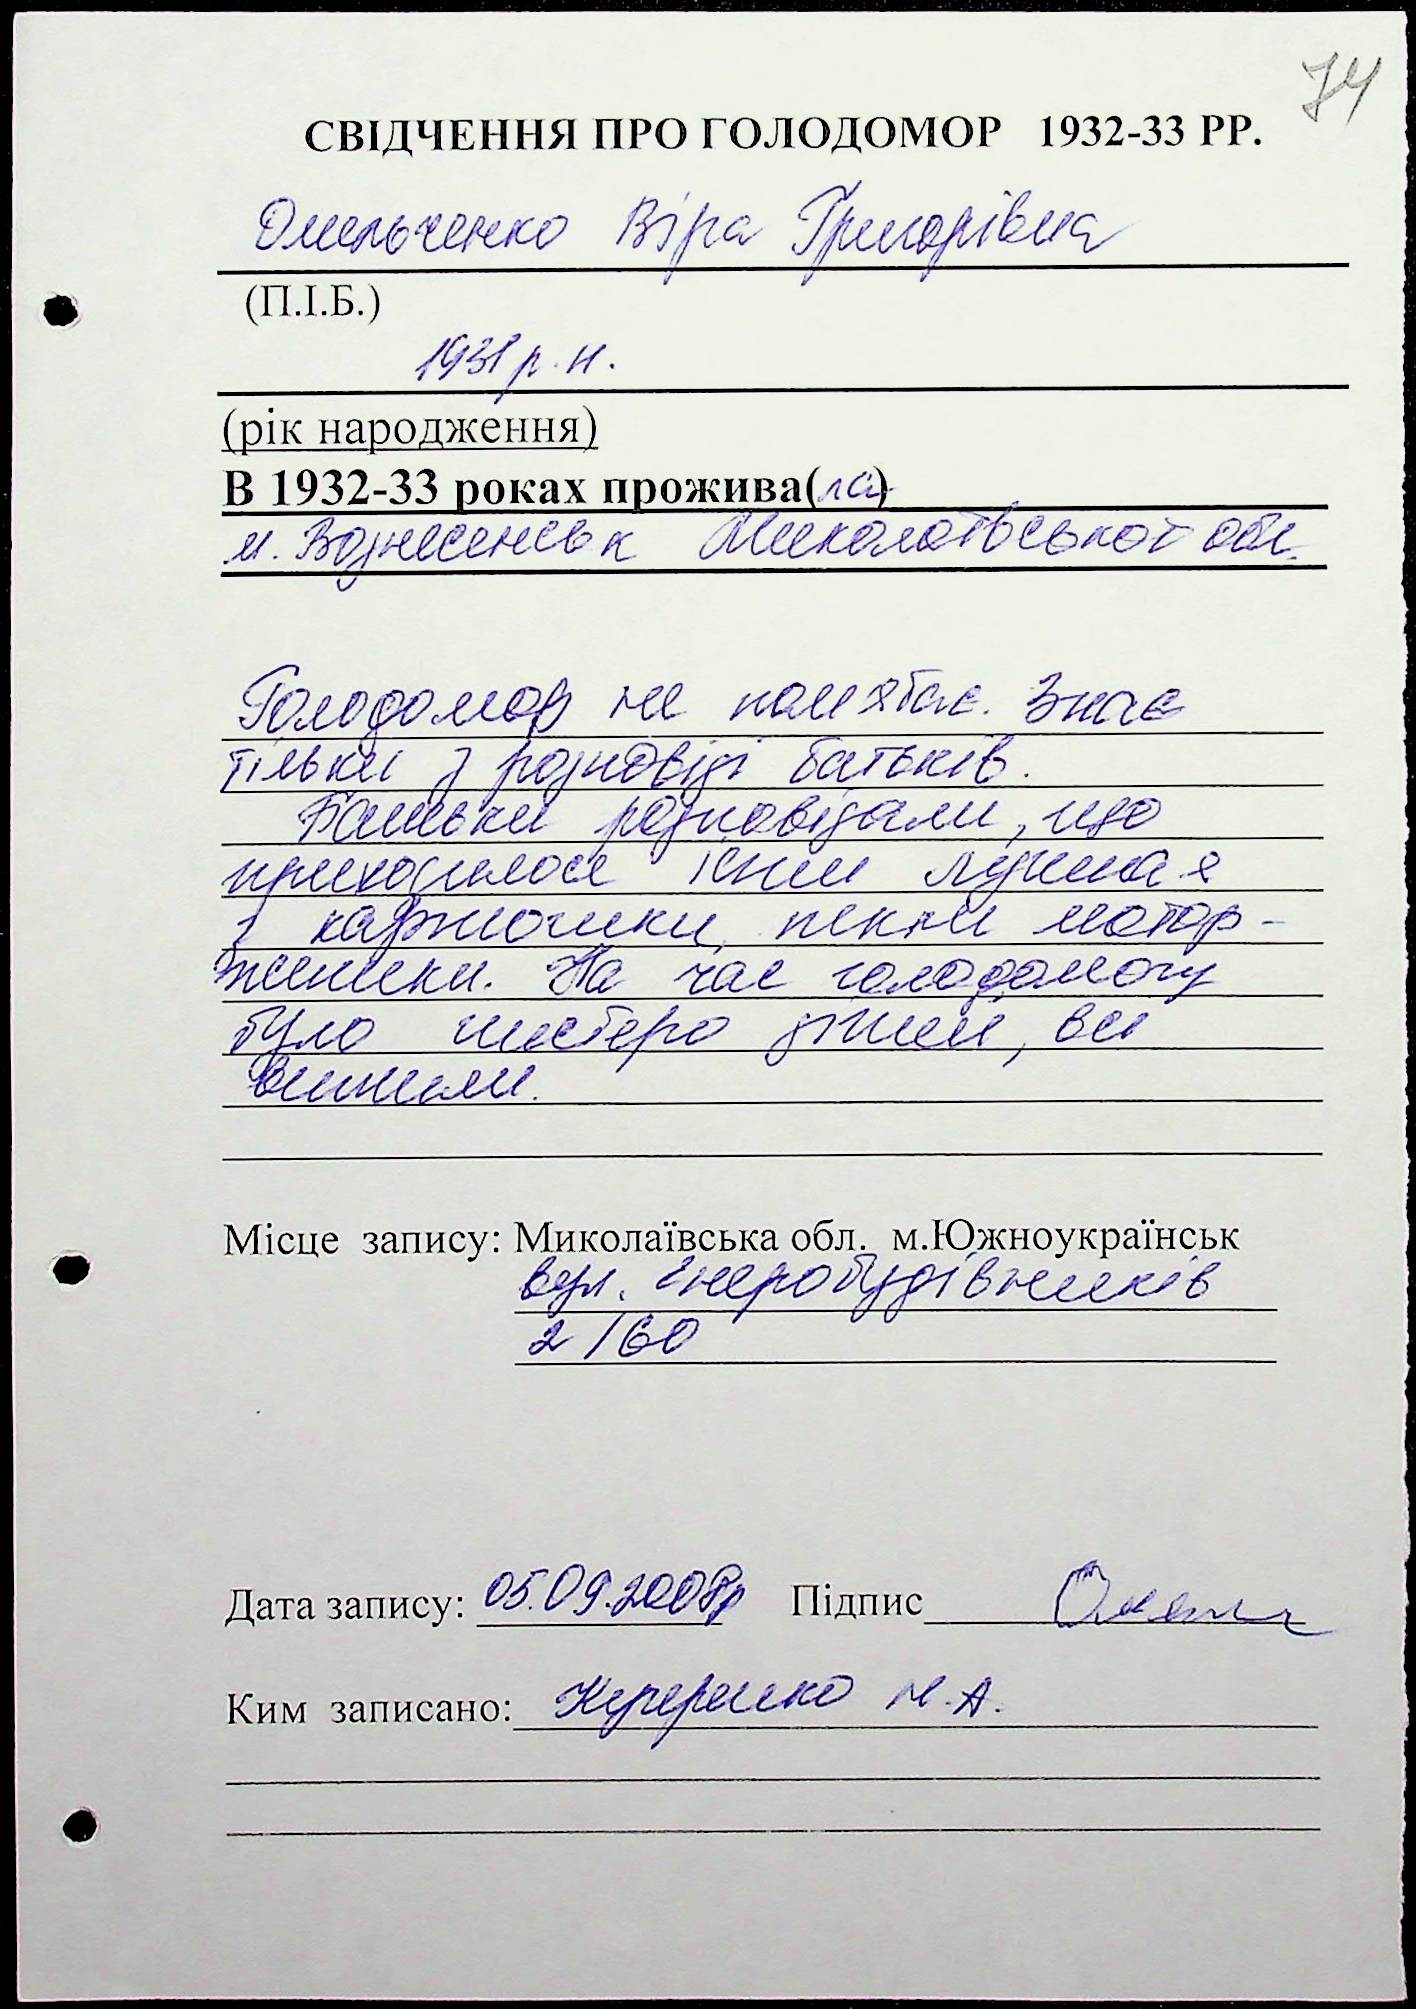 74
СВІДЧЕННЯ ПРО ГОЛОДОМОР 1932-33 РР.
Омельченко Віра Григорівна
(П.І.Б.)
1931 р. н.
(рік народження)
В 1932-33 роках прожива(ла)
м. Вознесенськ Миколаївської обл.
Голодомор не пам'ятає. Знає
тільки з розповіді батьків.
Батьки розповідали, що
приходилося їсти лушпа я
з картошки, пекти матор-
женики. На час голодомору
було шестеро дітей, всі
вижили.
Місце запису: Миколаївська обл. м.Южноукраїнськ
вул. Енергобудівників
2 / 60
Дата запису: 05.09.2008р Підпис
Ким записано: М.А.